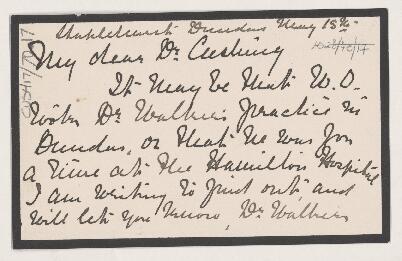 Chapelhurst Dundas May 18th
My dear Dr Cushing
It may be that W.O.
took Dr Walkers practice in
Dundas, or that he was for
a time at the Hamilton Hospital
I am writing to find out, and
will let you know, Dr Walkers
CUS417/70/17